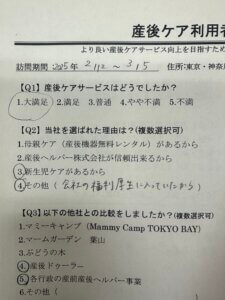 産後ケア利用者
より良い産後ケアサービス向上を目指すため
訪問期間 2025年 2/12 ～ 3/5 住所:東京・神奈
【Q1】産後ケアサービスはどうでしたか?
1.大満足 2.満足 3.普通 4.やや不満 5.不満
【Q2】当社を選ばれた理由は?(複数選択可)
1.母親ケア(産後機器無料レンタル)があるから
2.産後ヘルパー株式会社が信頼出来るから
3.新生児ケアがあるから
4.その他(会社の福利厚生に入っていたから)
【Q3】以下の他社との比較をしましたか?(複数選択可)
1.マミーキャンプ(Mammy Camp TOKYO BAY)
2.マームガーデン 葉山
3.ぶどうの木
4.産後ドゥーラー
5.各行政の産前産後ヘルパー事業
6.その他(